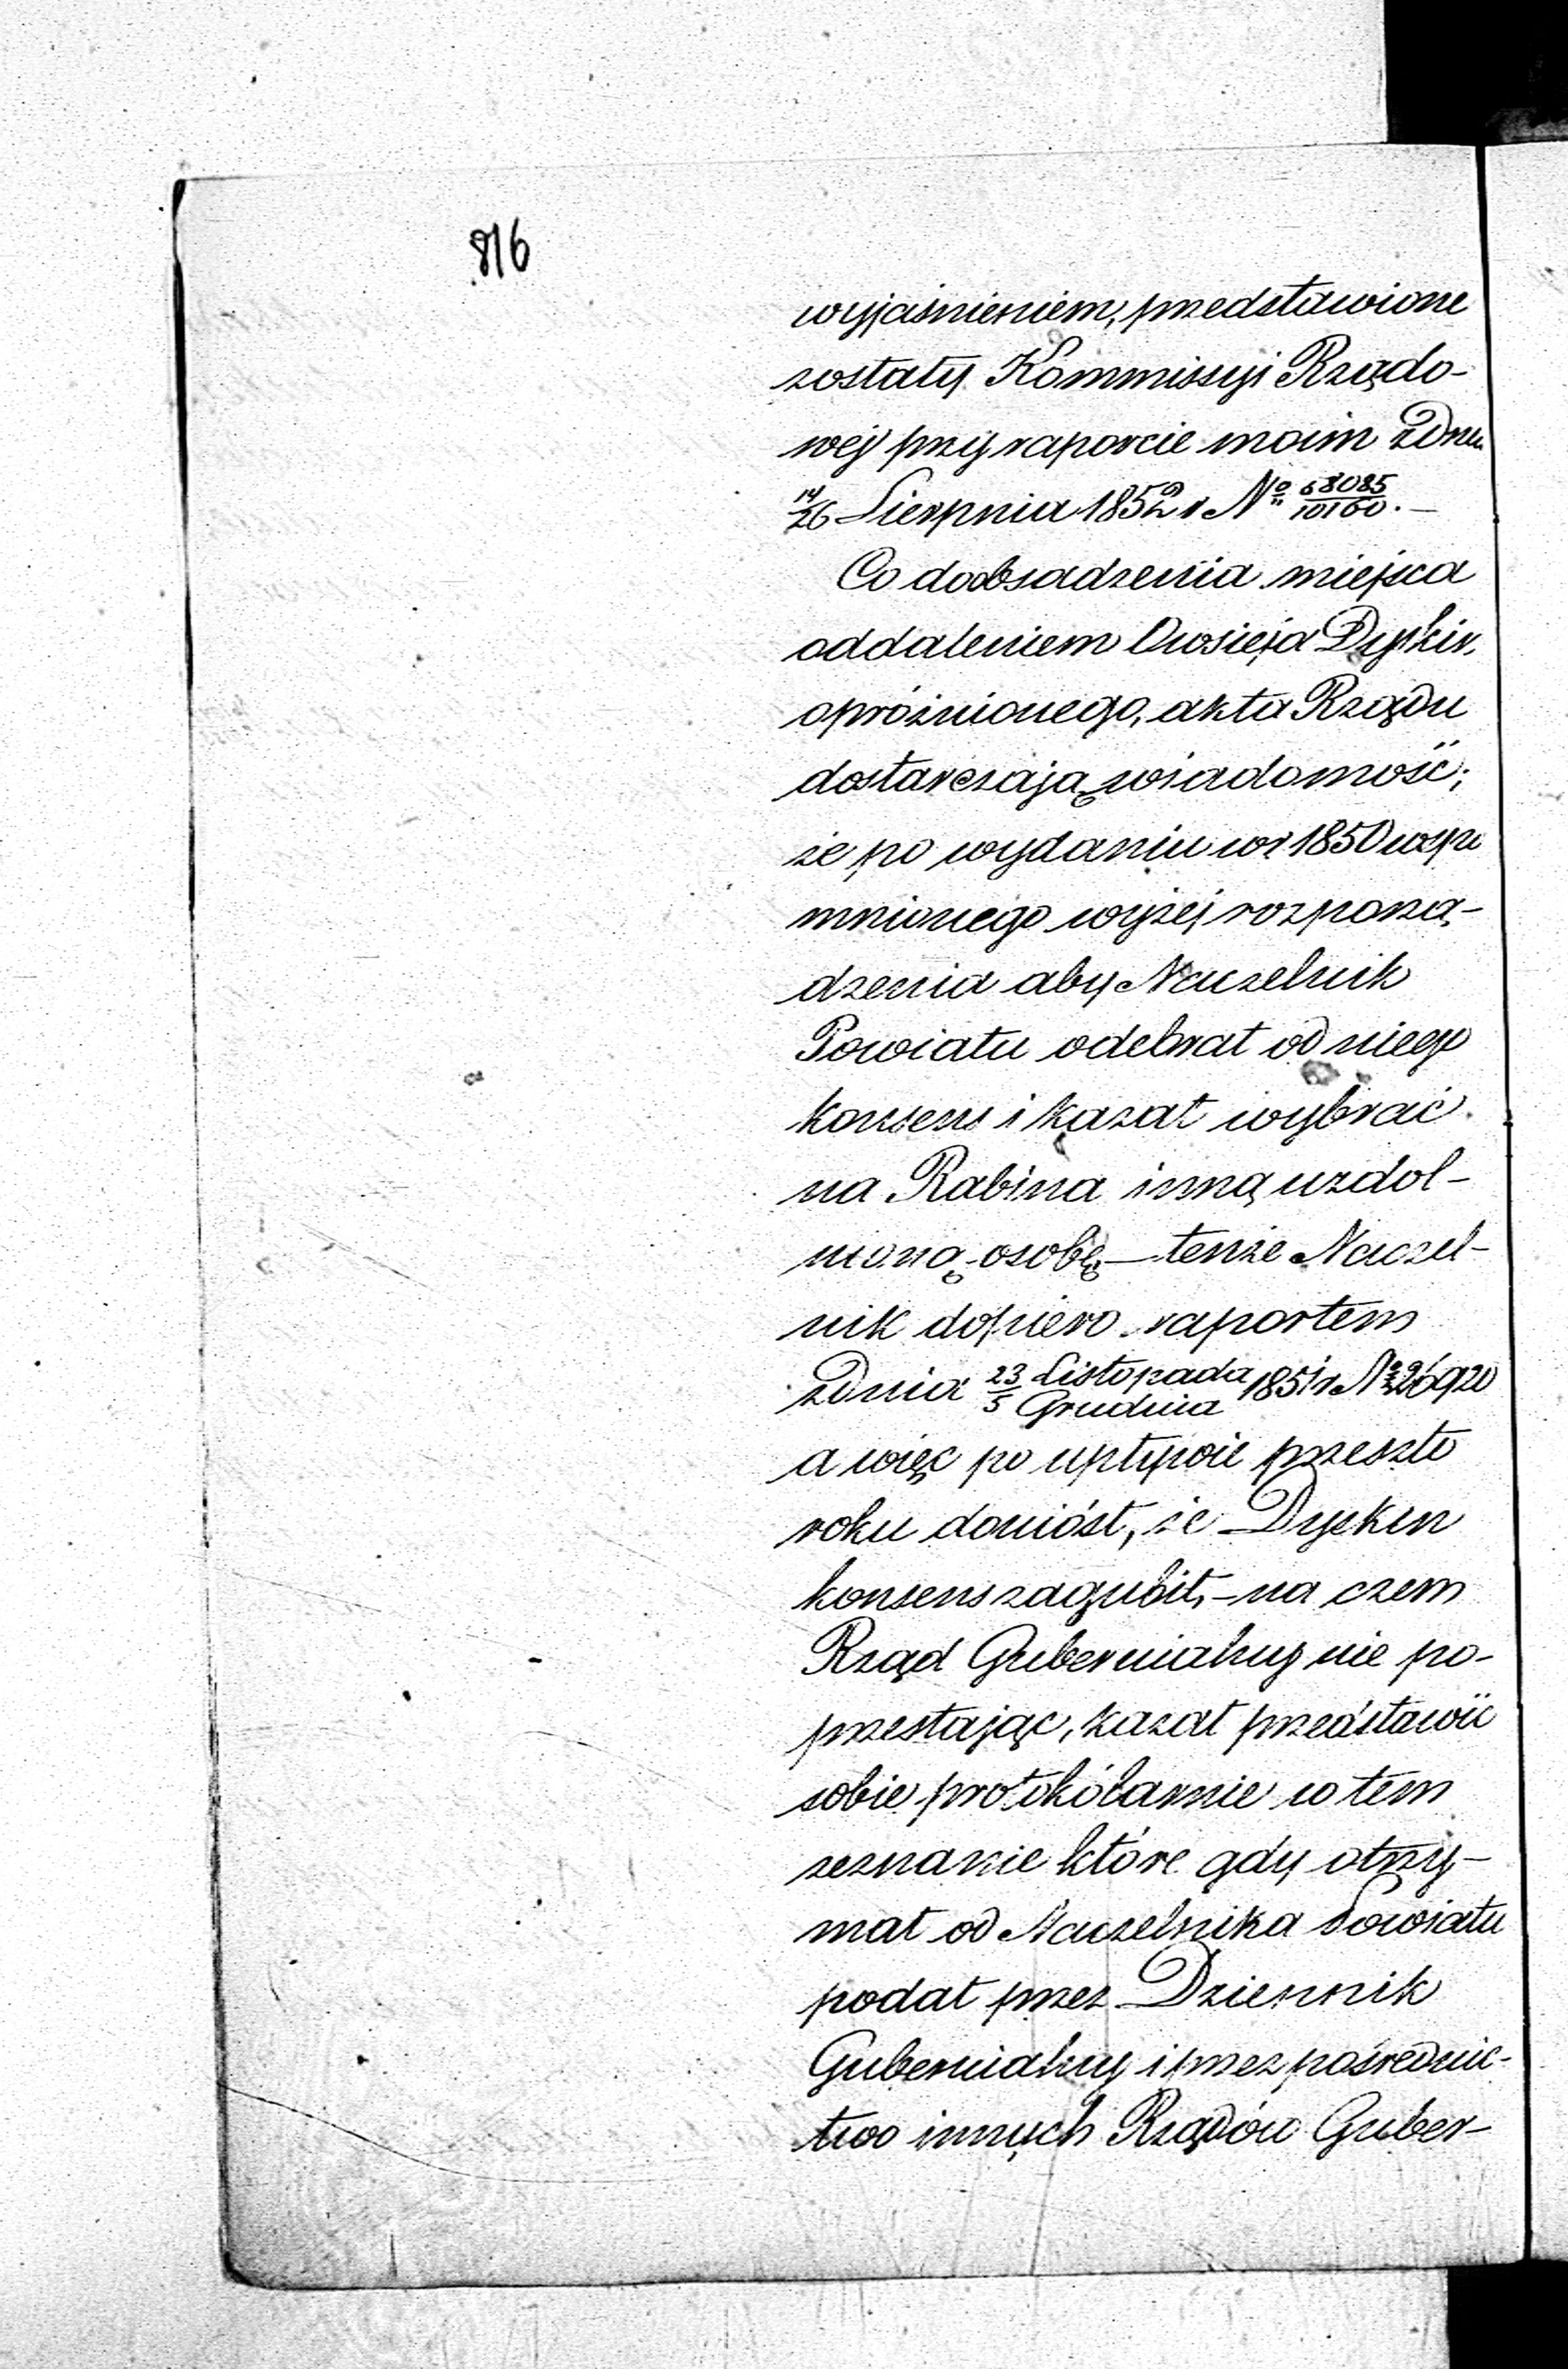 816
wyjaśnieniem, przedstawione
zostały Kommissyi Rządo-
wej przy raporcie moim z Dnia
14/26 Sierpnia 1852 r No 68085/10160. —
Co do obsadzenia miejsca
oddaleniem Owsieja Dyskin,
opróżnionego, akta Rządu
dostarczają wiadomość;
że po wydaniu w r 1850 wspo
mnionego wyżej rozporzą-
dzenia aby Naczelnik
Powiatu odebrał od niego
konsens i kazał wybrać
na Rabina inną uzdol-
nioną osobę — tenże Naczel-
nik dopiero raportem
z Dnia 23 Listopada/5 Grudnia 1851 r No 26920
a więc po upływie przeszło
roku doniósł, że Dyskin
konsens zagubił, — na czem
Rząd Gubernialny nie po-
przestając, kazał przedstawić
sobie protokólarnie w tem
zeznanie które gdy otrzy-
mał od Naczelnika Powiatu
podał przez Dziennik
Gubernialny i przez pośrednic-
two innych Rządów Guber-